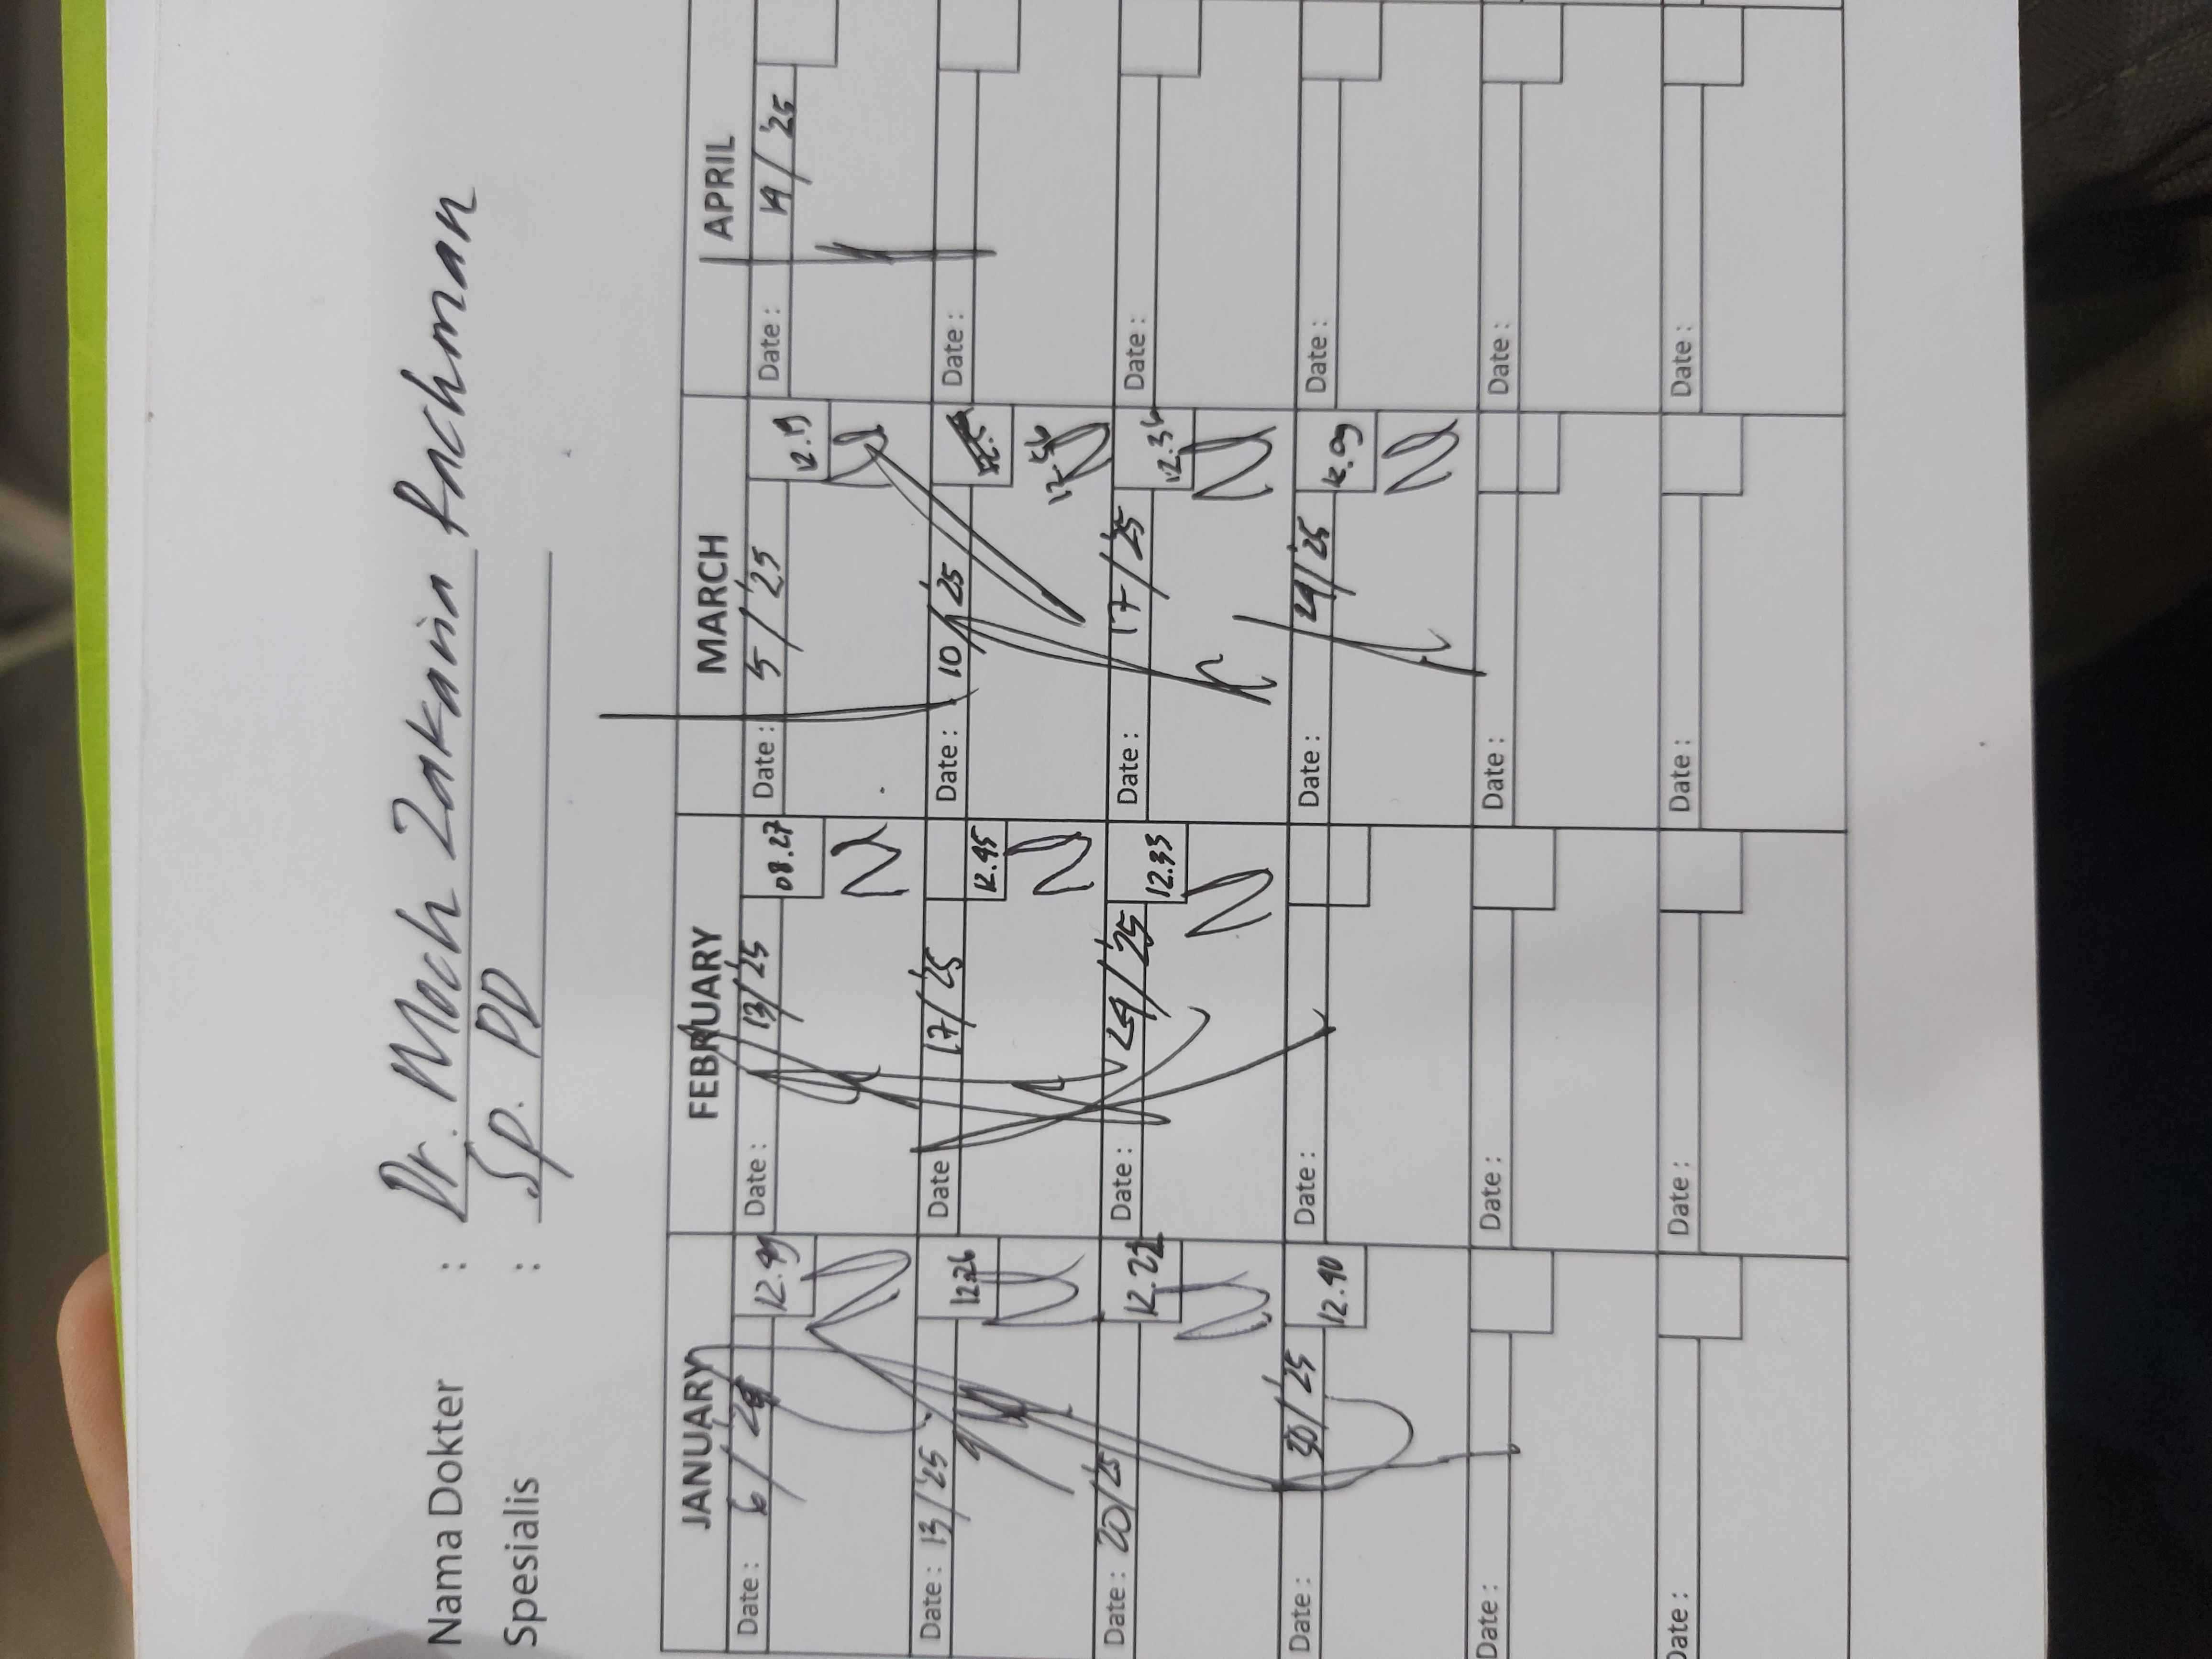 Nama Dokter : Dr. Moch Zakaria Rachman
Spesialis : Sp. PD
JANUARY FEBRUARY MARCH APRIL
Date : 6/ 12.49 Date : 13/'25 08.27 Date : 5/'25 12.19 Date : 14/'25
Date : 13/'25 12.26 Date 17/'25 12.45 Date : 10/'25 Date :
12.56
Date : 20/'25 12.22 Date : 24/'25 12.33 Date : 17/'25 12.36 Date :
Date : 30/'25 12.40 Date : Date : 24/'25 12.09 Date :
Date : Date : Date : Date :
Date : Date : Date : Date :